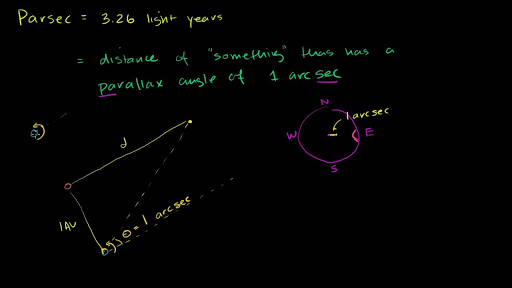 Parsec = 3.26 light years
= distance of "something" thas has a
parallax angle of 1 arc sec
N
1 arcsec
W
E
S
d
1AU
θ = 1 arcsec